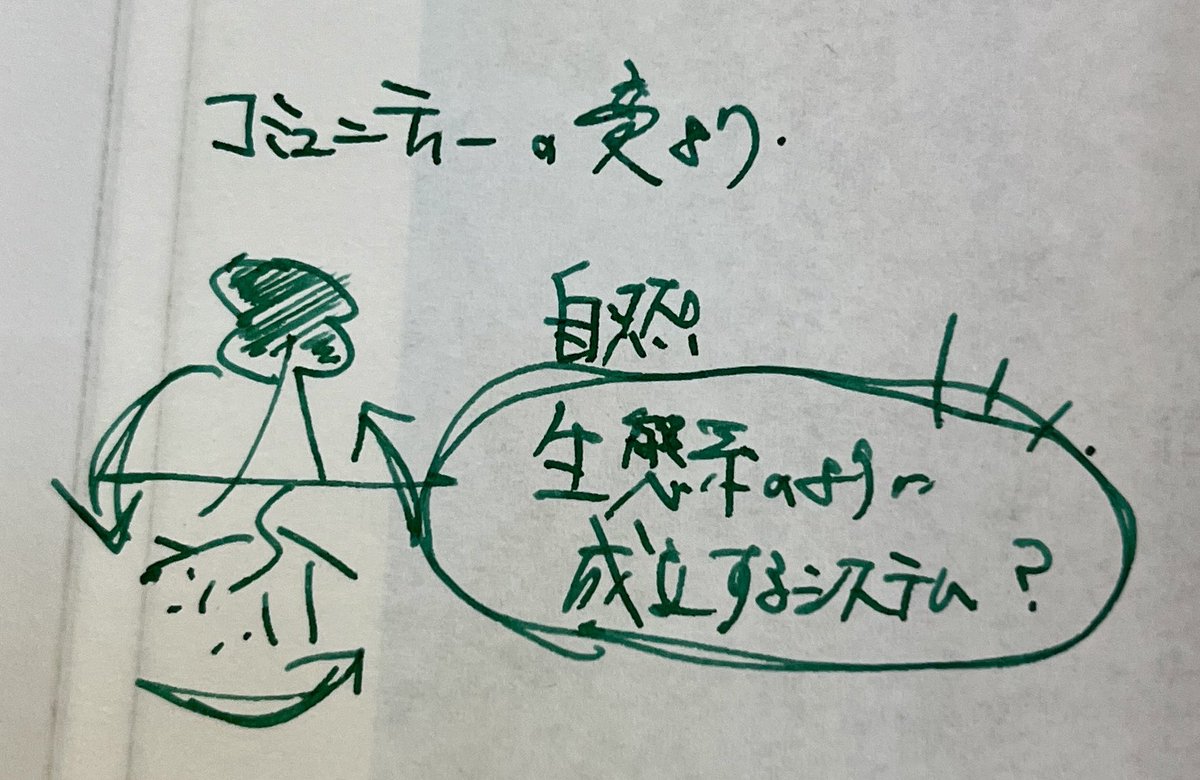 コミュニティーの変より.
自然
生態系のように
成立するシステム?